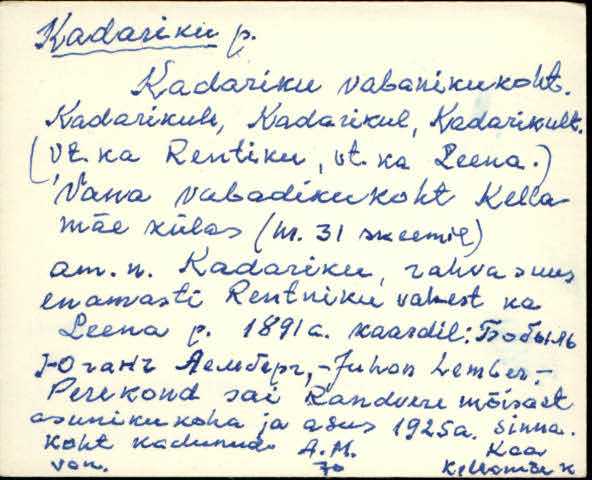 Kadariku p.
Kadariku vabanikukoht.
Kadarikule, Kadarikul, Kadarikult.
(vt. ka Rentiku, vt. ka Leena.)
Vana vabadikukoht Kella-
mäe külas (nr. 31 skeemil)
am. n. Kadariku, rahva suus
enamasti Rentniku vahest ka
Leena p. 1891 a. kaardil: Бобыль
Юганъ Лемберг, - Juhan Lember, -
Perekond sai Randvere mõisast
asunikukoha ja asus 1925 a. sinna.
Koht kadunud A. M. Kaa
von. 70 Kellamäe k